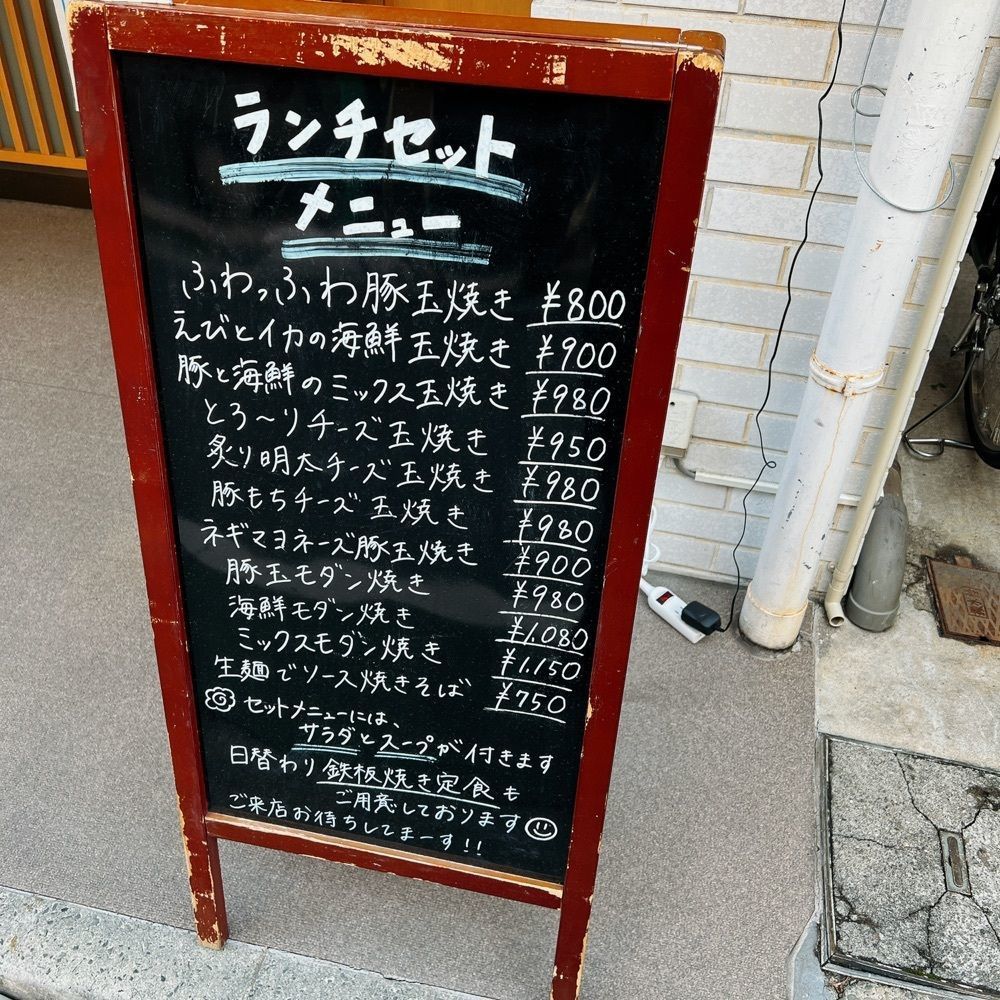 ランチセット
メニュー
ふわっふわ豚玉焼き ¥800
えびとイカの海鮮玉焼き ¥900
豚と海鮮のミックス玉焼き ¥980
とろ〜りチーズ玉焼き ¥950
炙り明太チーズ玉焼き ¥980
豚もちチーズ玉焼き ¥980
ネギマヨネーズ豚玉焼き ¥900
豚玉モダン焼き ¥980
海鮮モダン焼き ¥1.080
ミックスモダン焼き ¥1.150
生麺でソース焼きそば ¥750
セットメニューには、
サラダとスープが付きます
日替わり鉄板焼き定食も
ご用意しております
ご来店お待ちしてまーす!!